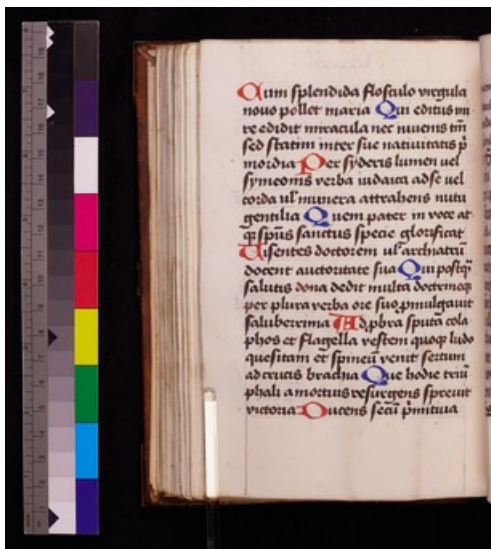 Cum splendida flosculo virgula
novo pollet maria Qui editus mi
re edidit miracula nec iuvenis tm̄
sed statim inter sue nativitatis p̄
mordia Per syderis lumen vel
symeonis verba iudaica ad se vel
corda ul' munera attrahens nutu
gentilia Quem pater in voce at
q̨ sp̄us sanctus specie glorificat
docent auctoritate sua Qui postq̄
salutis dona dedit multa doctrineq̨
per plura verba ore suo ꝓmulgavit
saluberrima Ad ꝓbra sputa cola
phos et flagella vestem quoq̨ ludo
quesitam et spineū venit sertum
ad crucis brachia Que hodie triū
phali a mortuis resurgens sprevit
victoria Ducens secū p̄mitiva